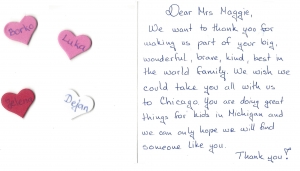 Borka
Luka
Dejan
Dear Mrs Maggie,
We want to thank you for
making us part of your big,
wonderful, brave, kind, best in
the world family. We wish we
could take you all with us
to Chicago. You are doing great
things for kids in Michigan and
we can only hope we will find
someone like you.
Thank you!